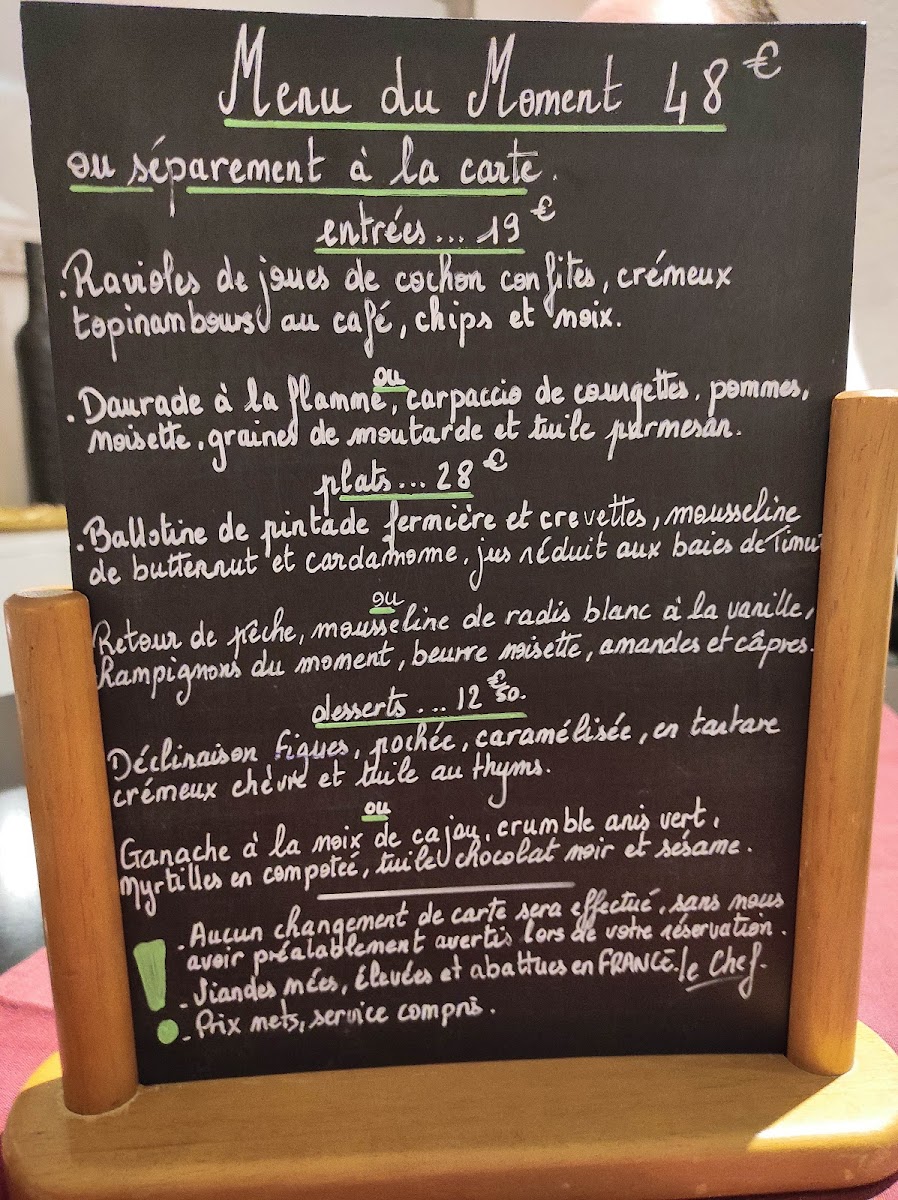 Menu du Moment 48€
ou séparement à la carte.
entrées... 19€
. Ravioles de joues de cochon confites, crémeux
topinambours au café, chips et noix.
ou
. Daurade à la flamme, carpaccio de courgettes, pommes,
noisette, graines de moutarde et tuile parmesan.
plats... 28€
. Ballotine de pintade fermière et crevettes, mousseline
de butternut et cardamome, jus réduit aux baies de Timut
ou
Retour de pêche, mousseline de radis blanc à la vanille,
hampignons du moment, beurre noisette, amandes et câpres.
desserts... 12€50.
Déclinaison figues, pochée, caramélisée, en tartare
crémeux chèvre et tuile au thyms.
ou
Ganache à la noix de cajou, crumble anis vert,
myrtilles en compoteé, tuile chocolat noir et sésame.
! - Aucun changement de carte sera effectué, sans nous
avoir préalablement avertis lors de votre réservation.
- Viandes nées, élevées et abattues en FRANCE. le Chef.
- Prix nets, service compris.